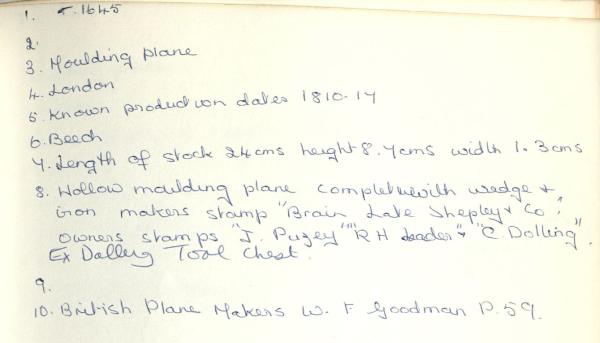 1. T.1645
2.
3. Moulding plane
4. London
5. Known production dates 1810-17
6. Beech
7. Length of stock 24cms height 8.7cms width 1.3cms
8. Hollow moulding plane complete with wedge &
iron makers stamp "Brain Late Shepley & Co".
Owners stamps "J. Puzey" "R H Leader" & "C. Dolling".
Ex Dolling Tool Chest.
9.
10. British Plane Makers W. F Goodman P.59.